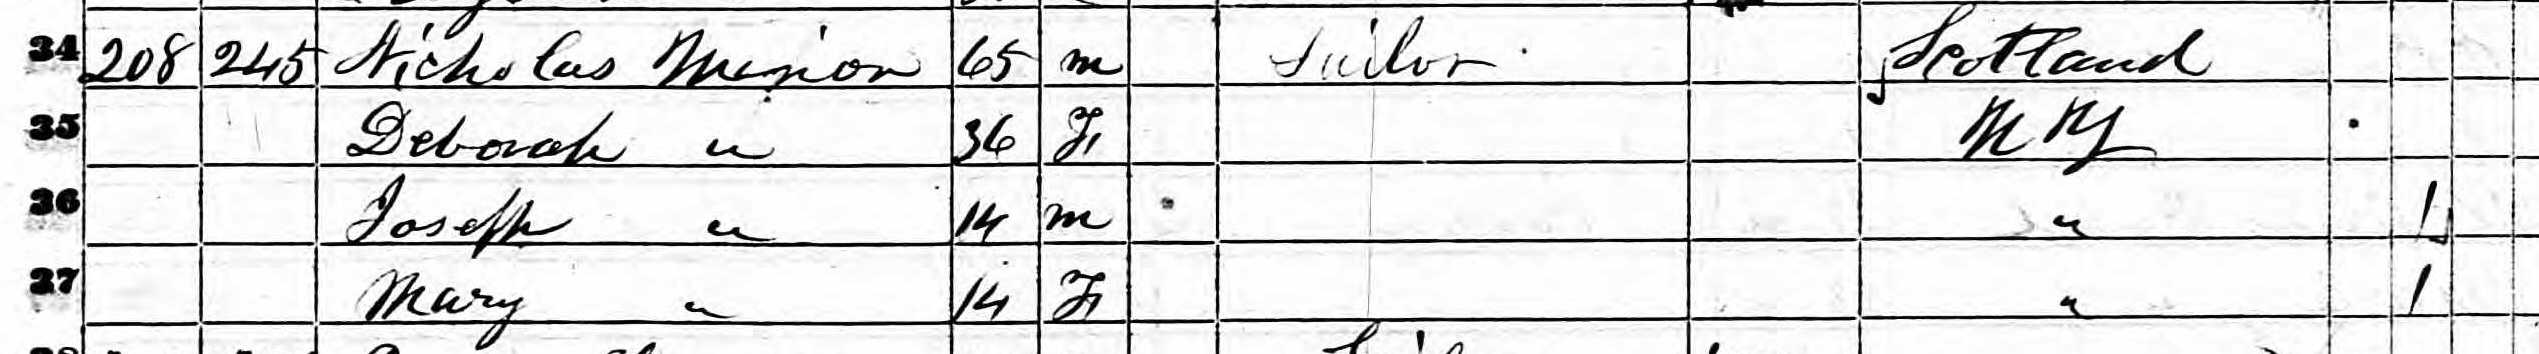 34 208 245 Nicholas Minion 65 m Sailor Scotland
35 Deborah " 36 F N Y
36 Joseph " 14 m " 1
37 Mary " 14 F " 1